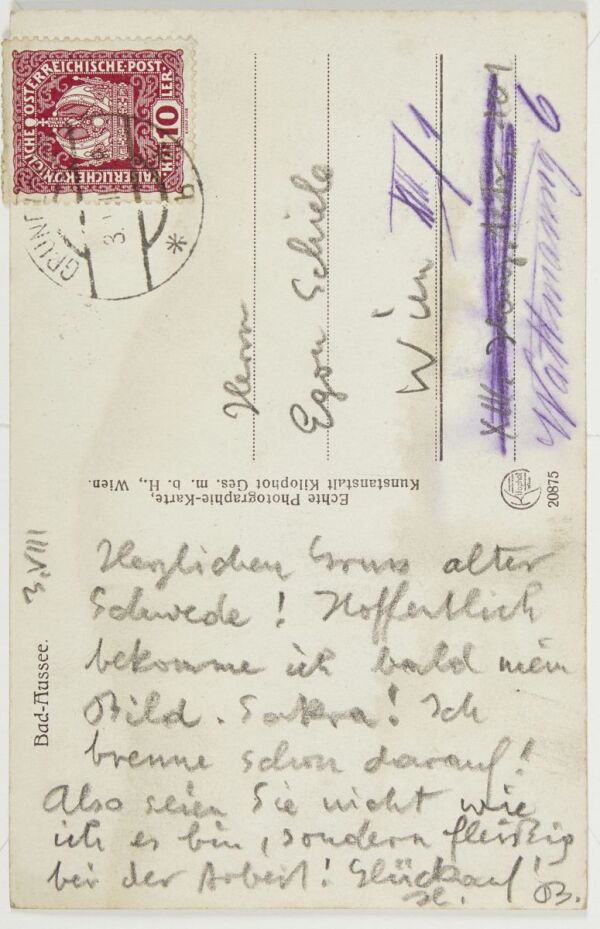 KAISERLICHE KÖNIGLICHE ÖSTERREICHISCHE POST
10
HELLER
GRUND
3. VIII
b
Herrn
Egon Schiele
Wien XIII/1
XIII.
Wattmanng 6
Echte Photographie-Karte,
Kunstanstalt Kilophot Ges. m. b. H., Wien.
Kilophot
20875
Bad-Aussee.
3. VIII
Herzlichen Gruss alter
Schwede! Hoffentlich
bekomme ich bald mein
Bild. Sakra! Ich
brenne schon darauf!
Also seien Sie nicht wie
ich es bin, sondern fleißig
bei der Arbeit! Glückauf!
H. B.